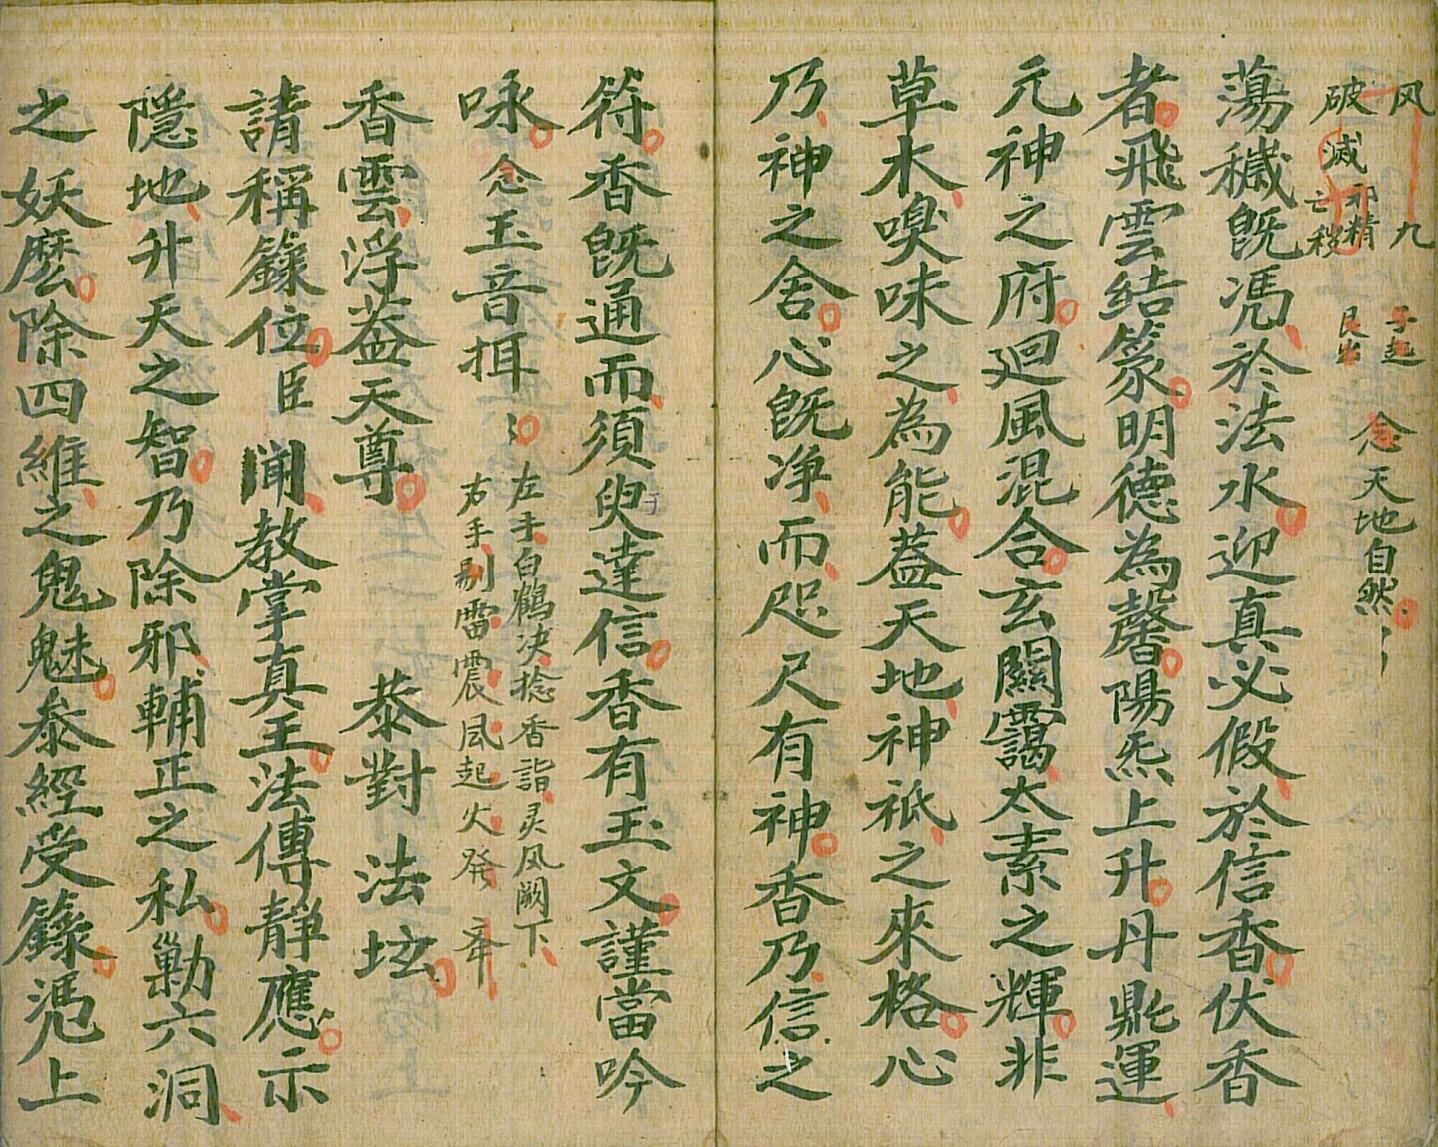 风　九　子起　念天地自然
破滅邪精亡秽　艮出
蕩穢既馮於法水迎真必假於信香伏香
者飛雲結篆明德為馨陽炁上升丹鼎運
元神之府廻風混合玄關靄太素之輝非
草木嗅味之為能蓋天地神祇之來格心
乃神之舍心既净而咫尺有神香乃信之
符香既通而須臾達信香有玉文謹當吟
咏念玉音挕
左手白鶴决捻香詣灵风阙下
右手剔雷震风起火発
香雲浮蓋天尊　恭對法坛
請稱籙位臣　闸教掌真王法傳靜應示
隱地升天之智乃除邪輔正之私勦六洞
之妖麽除四維之鬼魅叅經受籙凴上